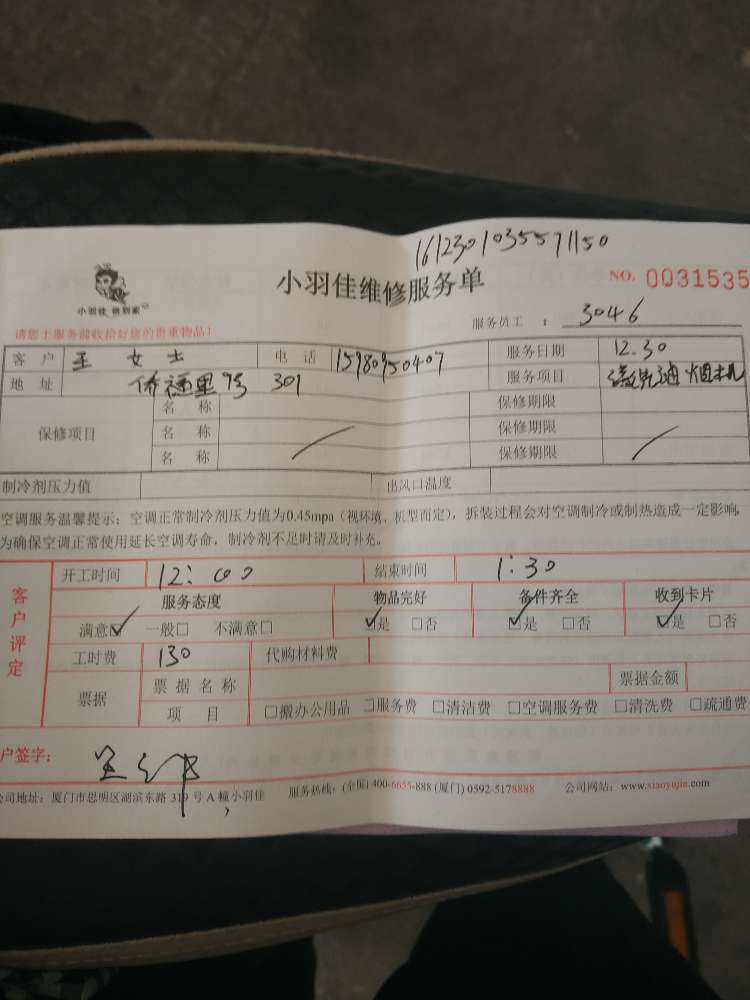 161230103557 1150
小羽佳维修服务单
NO. 0031535
小羽佳 俏到家
请您于服务前收拾好您的贵重物品!
服务员工 : 3046
客户 王女士 电话 15980950407 服务日期 12.30
地址 侨福里 7号 301 服务项目 油烟机
保修项目 名称 保修期限
名称 保修期限
名称 保修期限
制冷剂压力值 出风口温度
空调服务温馨提示:空调正常制冷剂压力值为0.45mpa(视环境、机型而定),拆装过程会对空调制冷或制热造成一定影响,
为确保空调正常使用延长空调寿命,制冷剂不足时请及时补充。
客户评定
开工时间 12:00 结束时间 1:30
服务态度 物品完好 备件齐全 收到卡片
满意☑ 一般□ 不满意□ ☑是 □否 ☑是 □否 ☑是 □否
工时费 130 代购材料费
票据 票据名称 票据金额
项目 □搬办公用品 □服务费 □清洁费 □空调服务费 □清洗费 □疏通费
户签字:
公司地址:厦门市思明区湖滨东路 319 号 A 幢小羽佳 服务热线:(全国) 400-6655-888 (厦门) 0592-5178888 公司网站:www.xiaoyujia.com